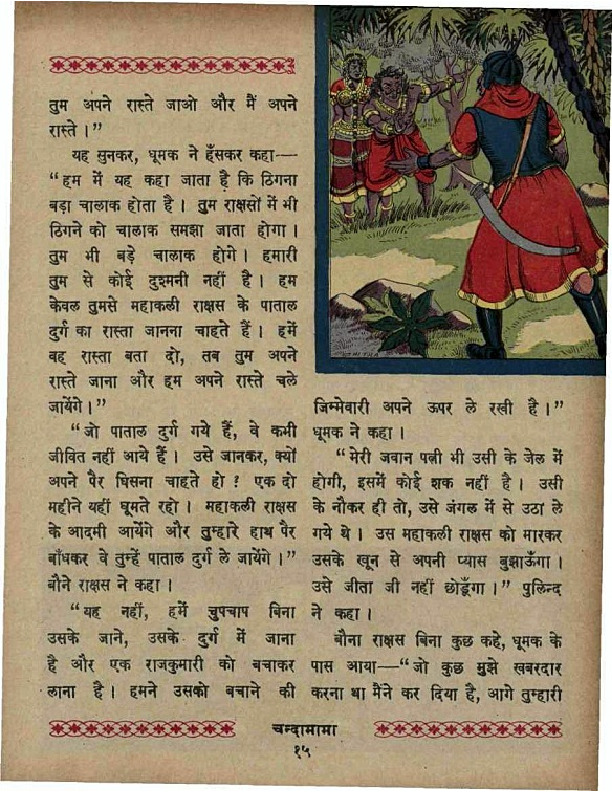 तुम अपने रास्ते जाओ और मैं अपने
रास्ते।”
यह सुनकर, धूमक ने हँसकर कहा—
“हम में यह कहा जाता है कि ठिगना
बड़ा चालाक होता है। तुम राक्षसों में भी
ठिगने को चालाक समझा जाता होगा।
तुम भी बड़े चालाक होगे। हमारी
तुम से कोई दुश्मनी नहीं है। हम
केवल तुमसे महाकली राक्षस के पाताल
दुर्ग का रास्ता जानना चाहते हैं। हमें
वह रास्ता बता दो, तब तुम अपने
रास्ते जाना और हम अपने रास्ते चले
जायेंगे।”
“जो पाताल दुर्ग गये हैं, वे कभी
जीवित नहीं आये हैं। उसे जानकर, क्यों
अपने पैर घिसना चाहते हो? एक दो
महीने यहीं घूमते रहो। महाकली राक्षस
के आदमी आयेंगे और तुम्हारे हाथ पैर
बाँधकर वे तुम्हें पाताल दुर्ग ले जायेंगे।”
बौने राक्षस ने कहा।
“यह नहीं, हमें चुपचाप बिना
उसके जाने, उसके दुर्ग में जाना
है और एक राजकुमारी को बचाकर
लाना है। हमने उसको बचाने की
जिम्मेवारी अपने ऊपर ले रखी है।”
धूमक ने कहा।
“मेरी जवान पत्नी भी उसी के जेल में
होगी, इसमें कोई शक नहीं है। उसी
के नौकर ही तो, उसे जंगल में से उठा ले
गये थे। उस महाकली राक्षस को मारकर
उसके खून से अपनी प्यास बुझाऊँगा।
उसे जीता जी नहीं छोड़ूँगा।” पुलिन्द
ने कहा।
बौना राक्षस बिना कुछ कहे, धूमक के
पास आया—“जो कुछ मुझे खबरदार
करना था मैंने कर दिया है, आगे तुम्हारी
चन्दामामा
१५